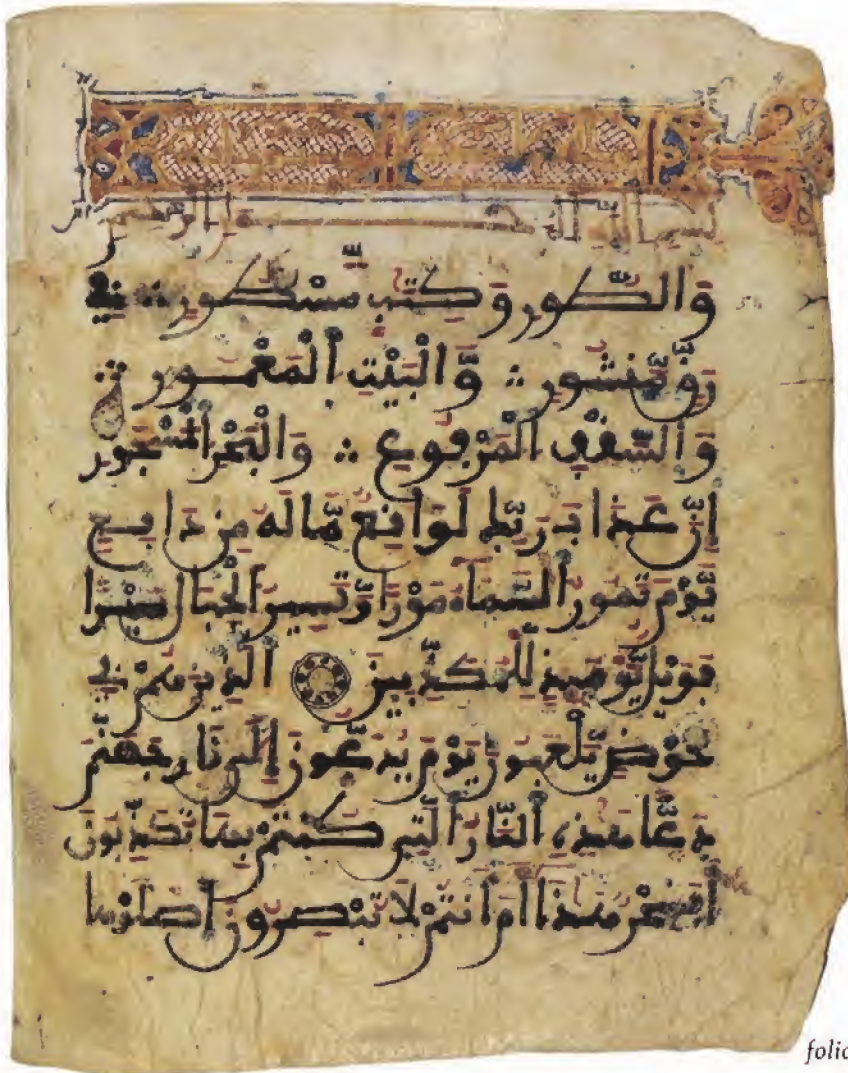 بسم الله الرحمن الرحيم
وَالطُّورِ وَكِتَٰبٍ مَّسْطُورٍ فِي
رَقٍّ مَّنشُورٍ وَالْبَيْتِ الْمَعْمُورِ
وَالسَّقْفِ الْمَرْفُوعِ وَالْبَحْرِ الْمَسْجُورِ
إِنَّ عَذَابَ رَبِّكَ لَوَاقِعٌ مَّا لَهُ مِن دَافِعٍ
يَوْمَ تَمُورُ السَّمَاءُ مَوْرًا وَتَسِيرُ الْجِبَالُ سَيْرًا
فَوَيْلٌ يَوْمَئِذٍ لِّلْمُكَذِّبِينَ الَّذِينَ هُمْ فِي
خَوْضٍ يَلْعَبُونَ يَوْمَ يُدَعُّونَ إِلَىٰ نَارِ جَهَنَّمَ
دَعًّا هَٰذِهِ النَّارُ الَّتِي كُنتُم بِهَا تُكَذِّبُونَ
أَفَسِحْرٌ هَٰذَا أَمْ أَنتُمْ لَا تُبْصِرُونَ اصْلَوْهَا
folio